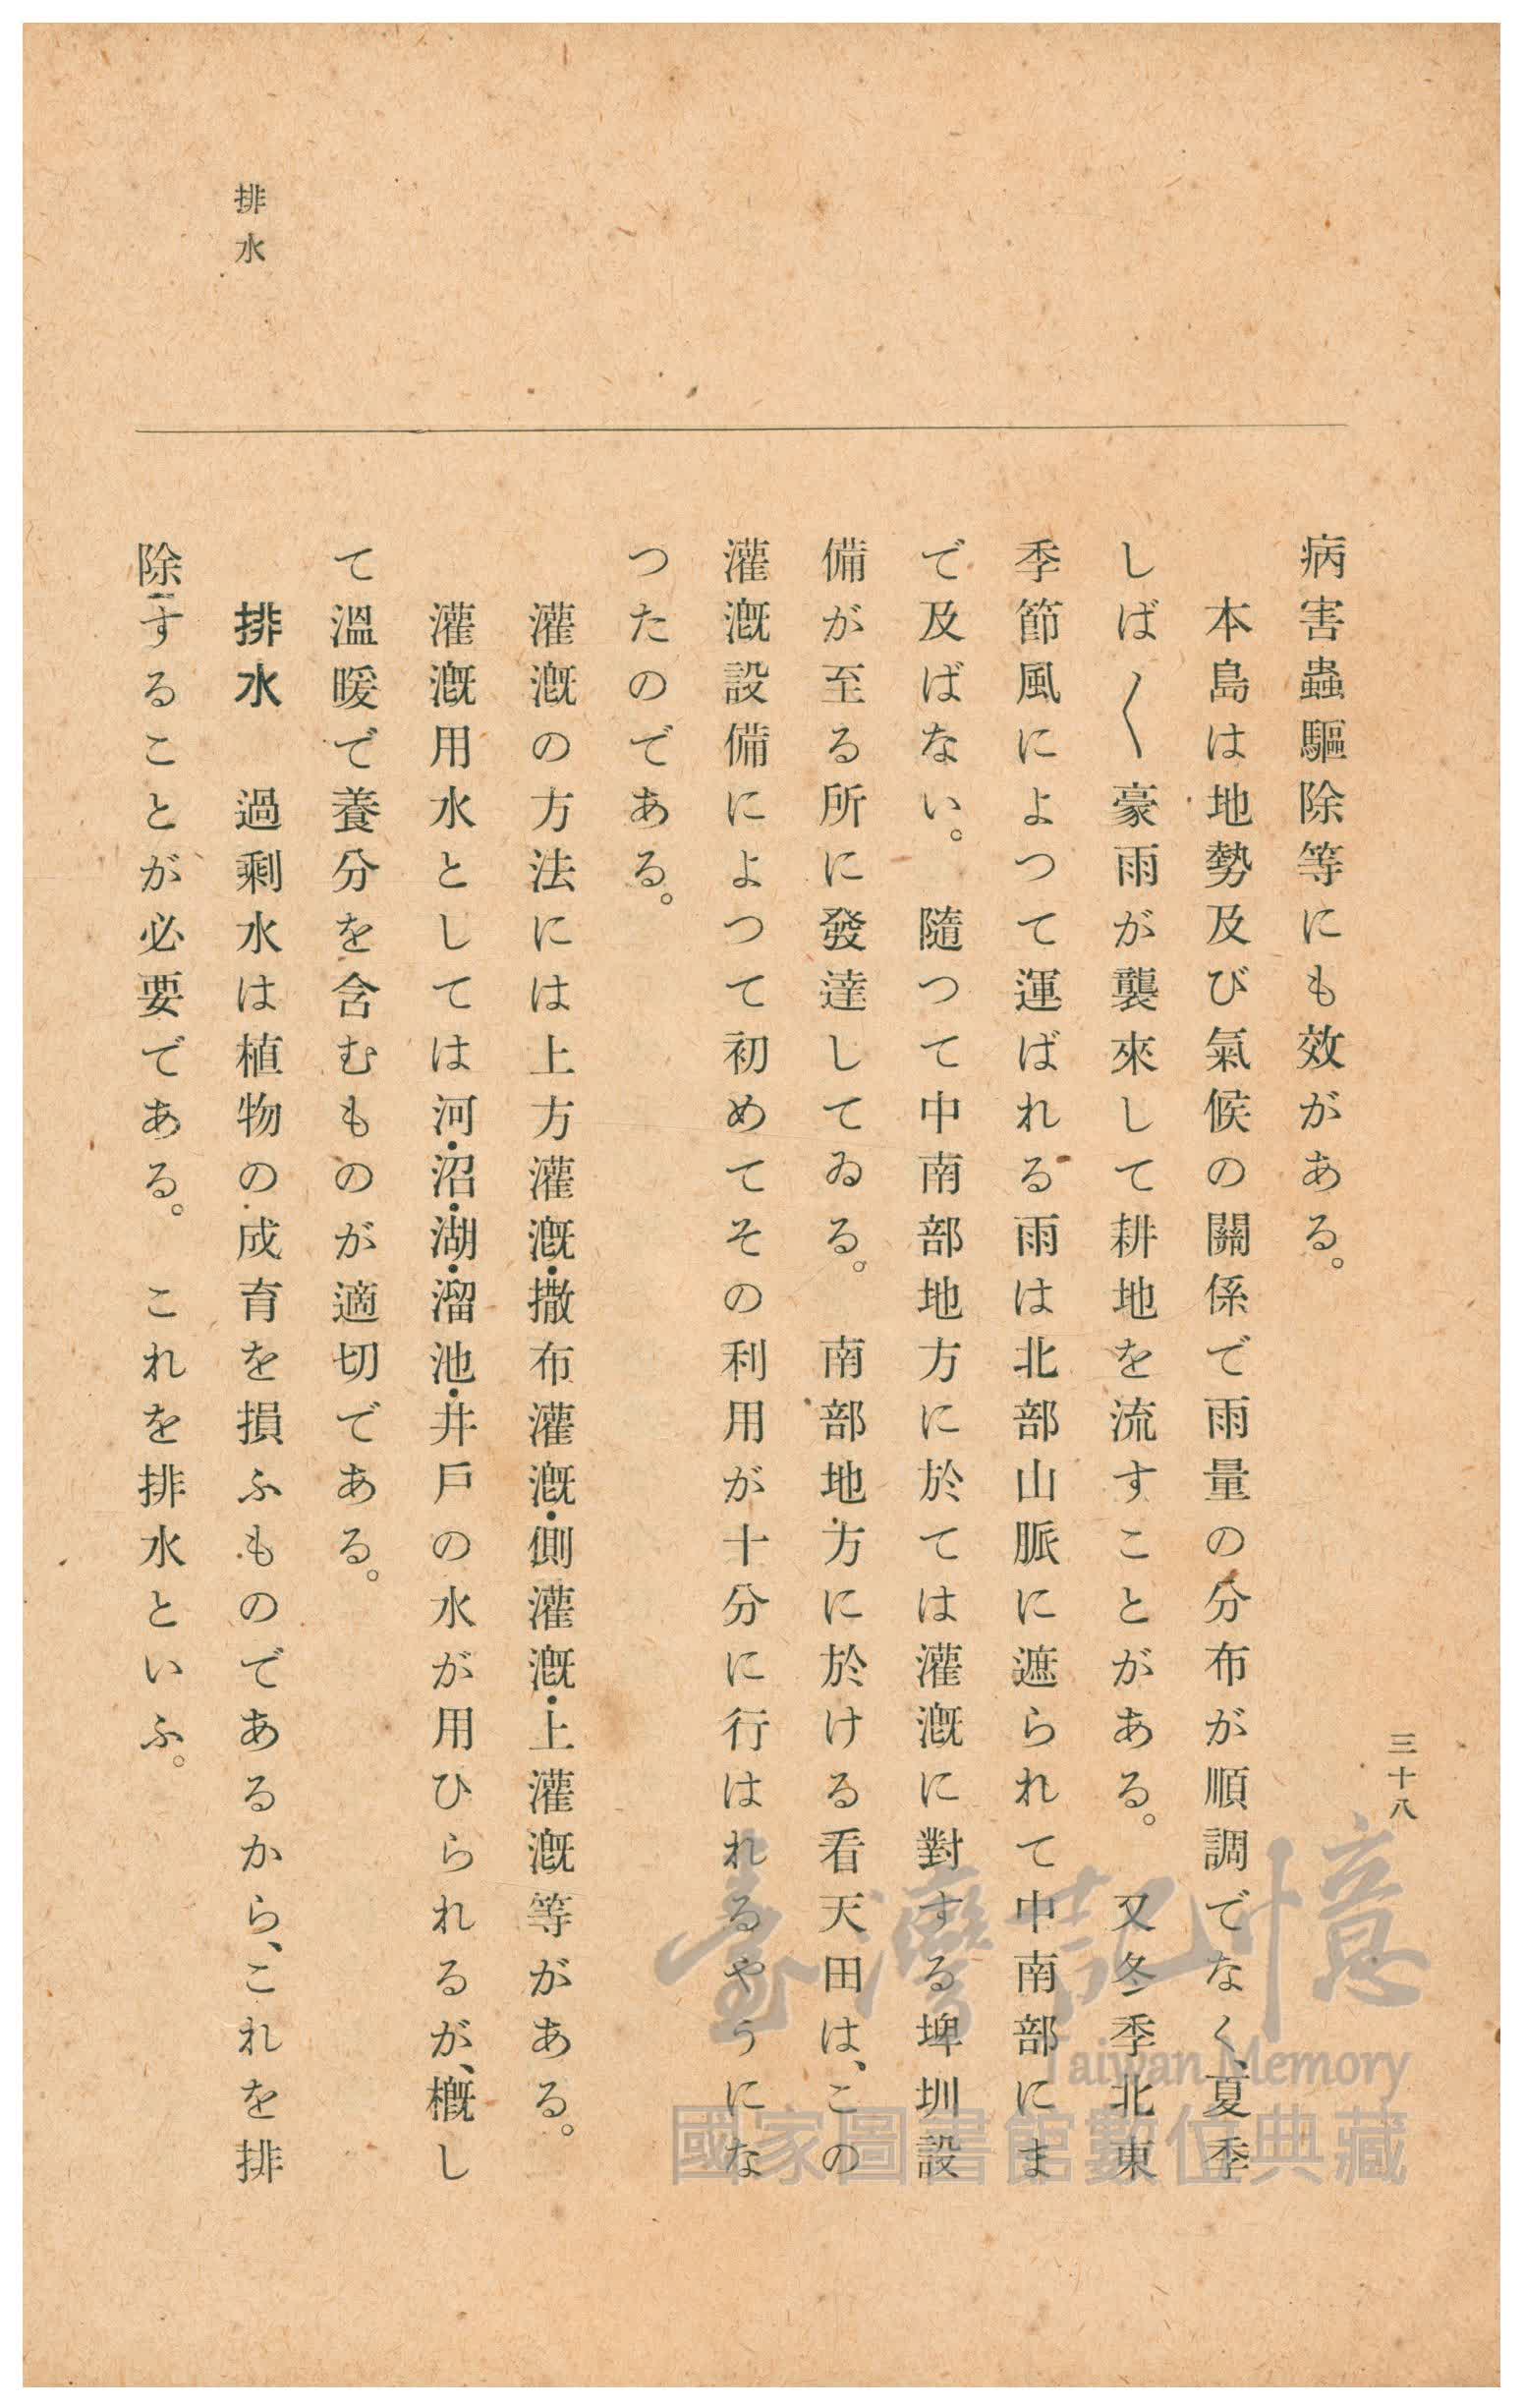 三十八
病害蟲驅除等にも效がある。
本島は地勢及び氣候の關係で雨量の分布が順調でなく、夏季
しば〱豪雨が襲來して耕地を流すことがある。又冬季北東
季節風によつて運ばれる雨は北部山脈に遮られて中南部にま
で及ばない。隨つて中南部地方に於ては灌漑に對する埤圳設
備が至る所に發達してゐる。南部地方に於ける看天田は、この
灌漑設備によつて初めてその利用が十分に行はれるやうにな
つたのである。
灌漑の方法には上方灌漑・撒布灌漑・側灌漑・上灌漑等がある。
灌漑用水としては河・沼・湖・溜池・井戶の水が用ひられるが、概し
て溫暖で養分を含むものが適切である。
排水
排水　過剩水は植物の成育を損ふものであるから、これを排
除することが必要である。これを排水といふ。
臺灣記憶
Taiwan Memory
國家圖書館數位典藏